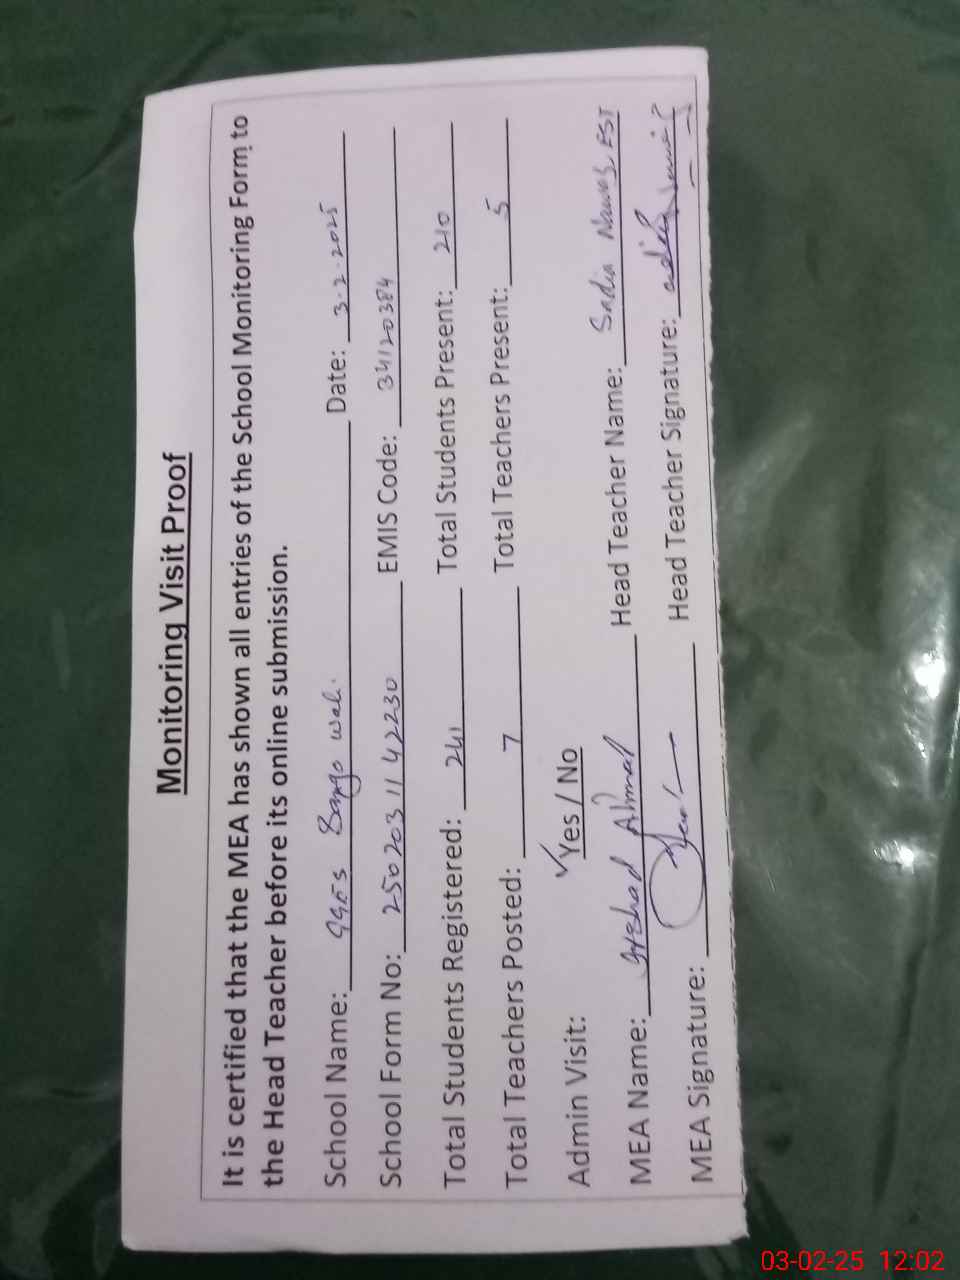 Monitoring Visit Proof
It is certified that the MEA has shown all entries of the School Monitoring Form to
the Head Teacher before its online submission.
School Name: GGES Bango wali Date: 3-2-2025
School Form No: 2502031142230 EMIS Code: 34120384
Total Students Registered: 241 Total Students Present: 210
Total Teachers Posted: 7 Total Teachers Present: 5
Admin Visit: ✓Yes / No
MEA Name: Arshad Ahmad Head Teacher Name: Sadia Nawaz EST
MEA Signature: Head Teacher Signature:
03-02-25 12:02